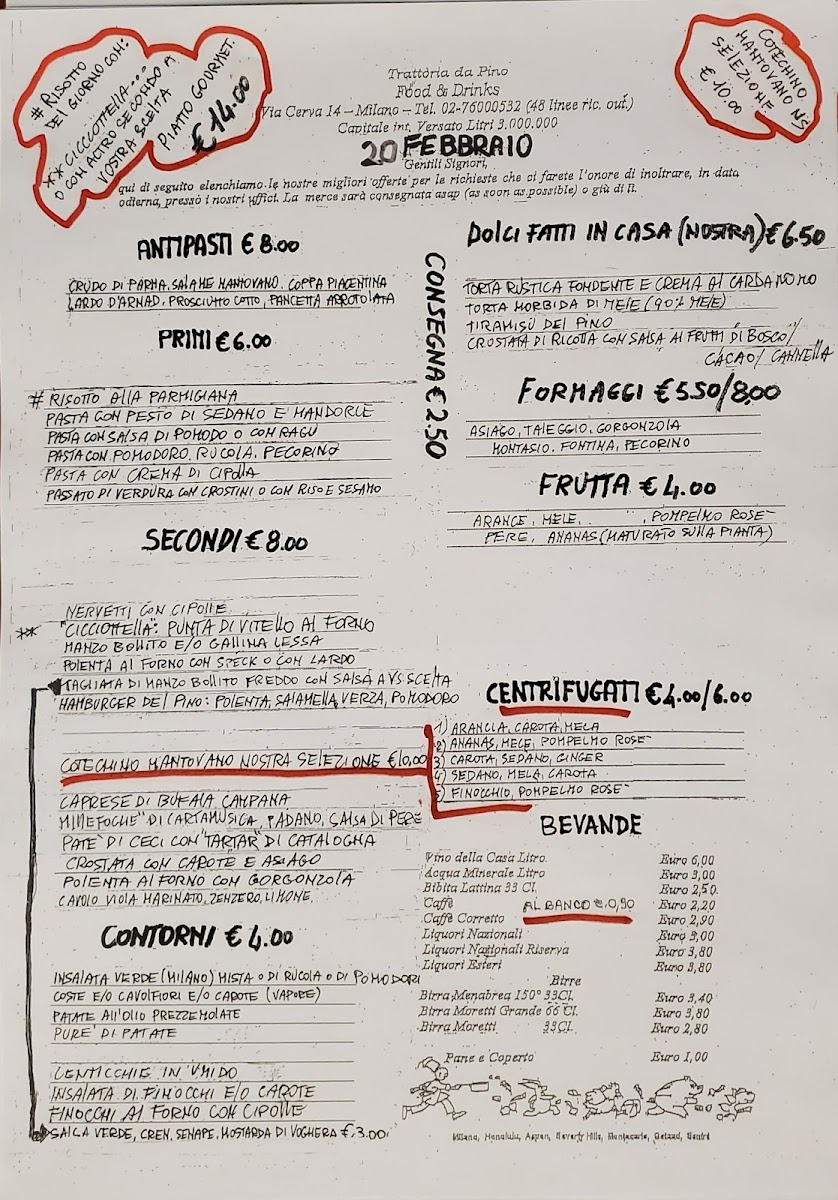 # RISOTTO
DEL GIORNO CON:
** CICCIOTTELLA...
O CON ALTRO SECONDO A
VOSTRA SCELTA
PIATTO GOURMET.
€ 14.00
Trattoria da Pino
Food & Drinks
Via Cerva 14 – Milano – Tel. 02-76000532 (48 linee ric. aut.)
Capitale int. Versato Litri 3.000.000
20 FEBBRAIO
Gentili Signori,
qui di seguito elenchiamo le nostre migliori offerte per le richieste che ci farete l'onore di inoltrare, in data
odierna, presso i nostri uffici. La merce sarà consegnata asap (as soon as possible) o giù di lì.
COTECHINO
MANTOVANO NS
SELEZIONE
€ 10.00
ANTIPASTI € 8.00
CRUDO DI PARMA, SALAME MANTOVANO. COPPA PIACENTINA
LARDO D'ARNAD, PROSCIUTTO COTTO, PANCETTA ARROTOLATA
PRIMI € 6.00
# RISOTTO ALLA PARMIGIANA
PASTA CON PESTO DI SEDANO E MANDORLE
PASTA CON SALSA DI POMODO O CON RAGU
PASTA CON POMODORO, RUCOLA, PECORINO
PASTA CON CREMA DI CIPOLLA
PASSATO DI VERDURA CON CROSTINI O CON RISO E SESAMO
SECONDI € 8.00
NERVETTI CON CIPOLLE
** "CICCIOTTELLA": PUNTA DI VITELLO AL FORNO
MANZO BOLLITO E/O GALLINA LESSA
POLENTA AL FORNO CON SPECK O CON LARDO
TAGLIATA DI MANZO BOLLITO FREDDO CON SALSA A VS SCELTA
HAMBURGER DEL PINO: POLENTA, SALAMELLA, VERZA, POMODORO
COTECHINO MANTOVANO NOSTRA SELEZIONE €10,00
CAPRESE DI BUFALA CAMPANA
MILLEFOGLIE" DI CARTAMUSICA, PADANO, SALSA DI PERE
PATE' DI CECI CON "TARTAR" DI CATALOGNA
CROSTATA CON CAROTE E ASIAGO
POLENTA AL FORNO CON GORGONZOLA
CAVOLO VIOLA MARINATO, ZENZERO, LIMONE.
CONTORNI € 4.00
INSALATA VERDE (MILANO) MISTA O DI RUCOLA O DI POMODORI
COSTE E/O CAVOLFIORI E/O CAROTE (VAPORE)
PATATE ALL'OLIO PREZZEMOLATE
PURE' DI PATATE
LENTICCHIE IN UMIDO
INSALATA DI FINOCCHI E/O CAROTE
FINOCCHI AL FORNO CON CIPOLLE
SALSA VERDE, CREN, SENAPE, MOSTARDA DI VOGHERA €.3.00
CONSEGNA € 2.50
DOLCI FATTI IN CASA (NOSTRA) € 6.50
TORTA RUSTICA FONDENTE E CREMA AL CARDAMOMO
TORTA MORBIDA DI MELE (90% MELE)
TIRAMISÙ DEL PINO
CROSTATA DI RICOTTA CON SALSA AI FRUTTI DI BOSCO/
CACAO/ CANNELLA
FORMAGGI € 5.50/8,00
ASIAGO, TALEGGIO, GORGONZOLA
MONTASIO, FONTINA, PECORINO
FRUTTA € 4.00
ARANCE, MELE, , POMPELMO ROSE'
PERE, ANANAS (MATURATO SULLA PIANTA)
CENTRIFUGATI € 4.00/6.00
1) ARANCIA, CAROTA, MELA
2) ANANAS, MELE, POMPELMO ROSE'
3) CAROTA, SEDANO, GINGER
4) SEDANO, MELA, CAROTA
5) FINOCCHIO, POMPELMO ROSE'
BEVANDE
Vino della Casa Litro. Euro 6,00
Acqua Minerale Litro Euro 3,00
Bibita Lattina 33 Cl. Euro 2,50
Caffè AL BANCO €.0,90 Euro 2,20
Caffè Corretto Euro 2,90
Liquori Nazionali Euro 3,00
Liquori Nazionali Riserva Euro 3,80
Liquori Esteri Euro 3,80
Birre
Birra Menabrea 150° 33Cl. Euro 3,40
Birra Moretti Grande 66 Cl. Euro 3,80
Birra Moretti 33Cl. Euro 2,80
Pane e Coperto Euro 1,00
Milano, Honolulu, Aspen, Beverly Hills, Montecarlo, Gstaad,